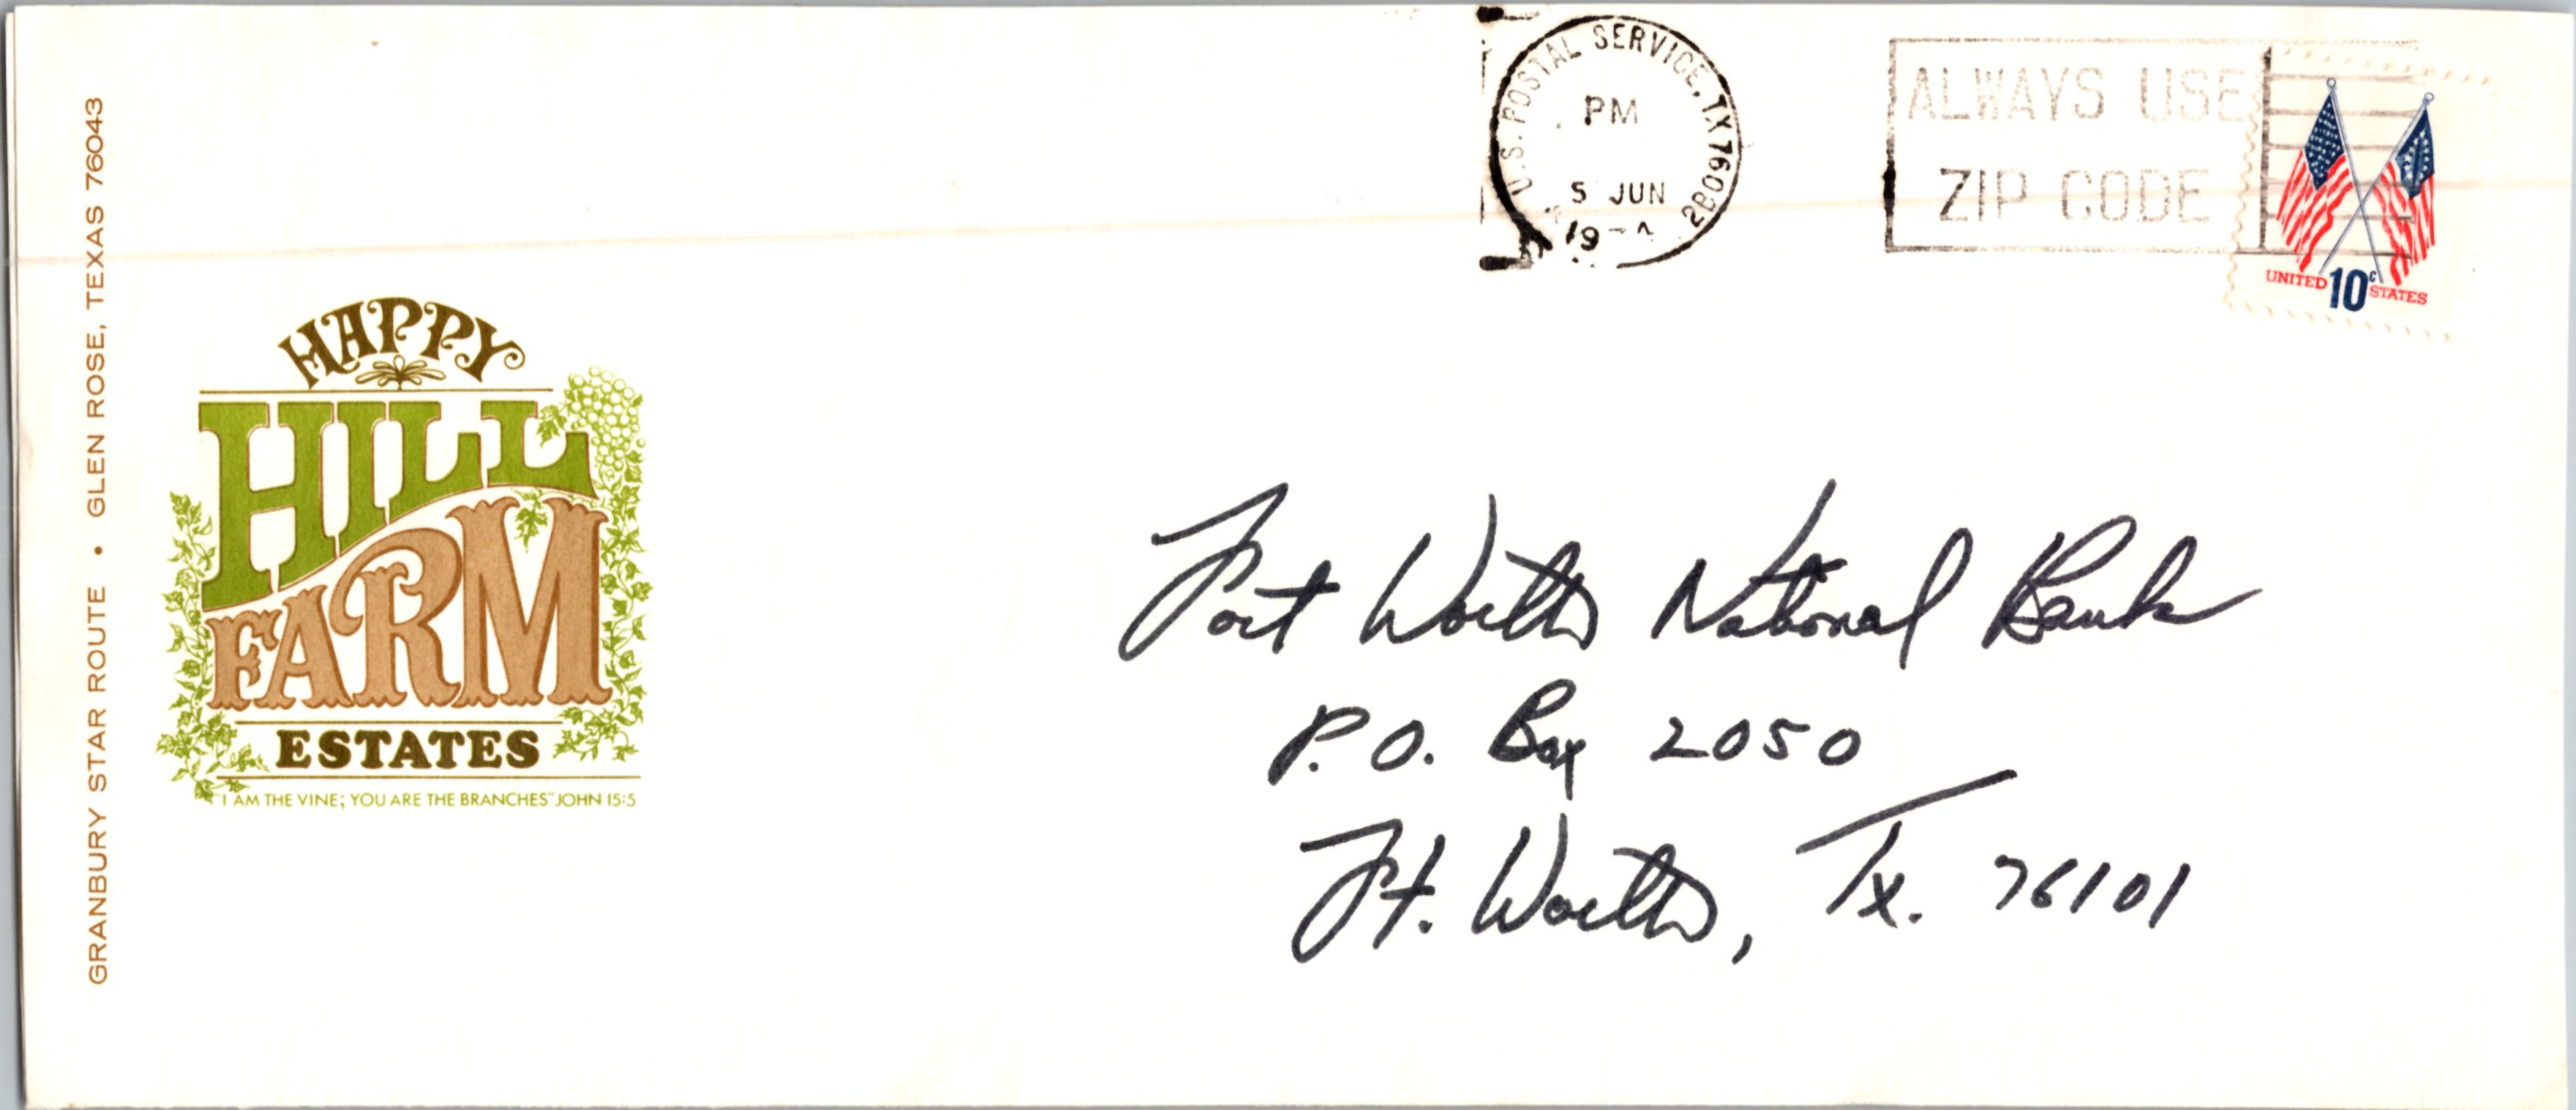 GRANBURY STAR ROUTE • GLEN ROSE, TEXAS 76043
HAPPY
HILL
FARM
ESTATES
"I AM THE VINE; YOU ARE THE BRANCHES" JOHN 15:5
U.S. POSTAL SERVICE, TX 760 2B
PM
5 JUN
19
ALWAYS USE
ZIP CODE
UNITED 10c STATES
Fort Worth National Bank
P.O. Box 2050
Ft. Worth, Tx. 76101